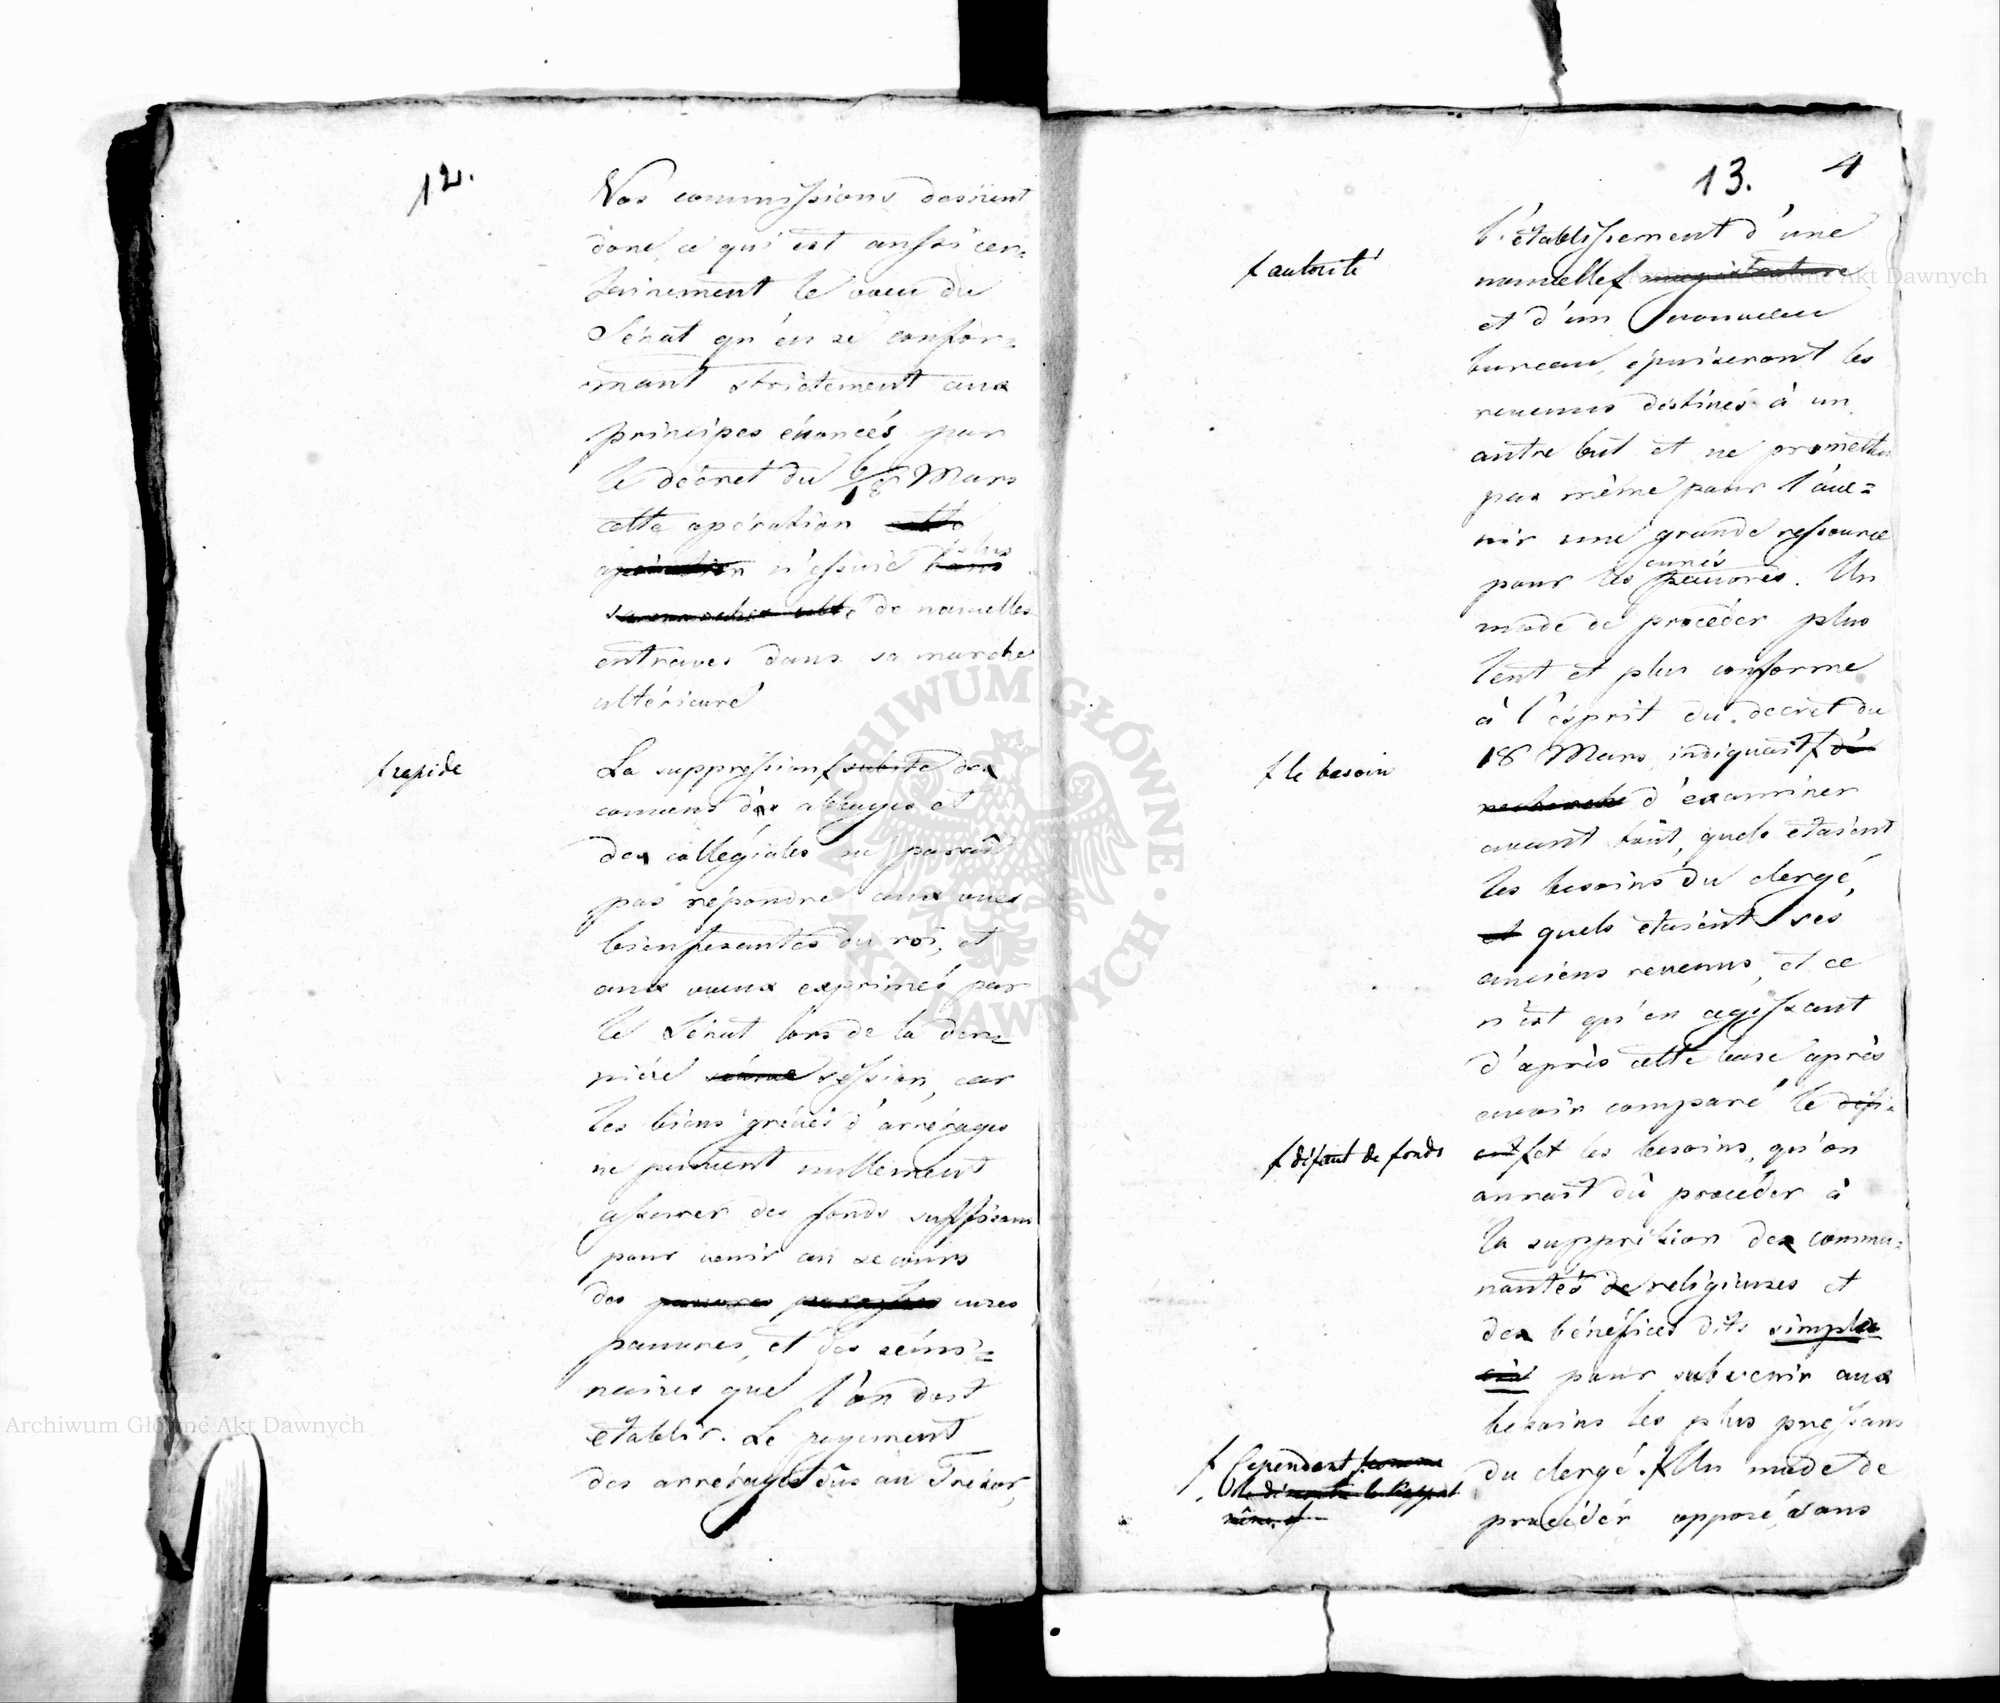 12.
Nos commissions desirent
donc, ce qui est aussi cer=
tainement le voeu du
Sénat qu'en se confor=
mant strictement aux
principes énoncés par
le décret du 6/18 Mars
cette opération cette
opération n'essuie plus
de nouvelles
entraves dans sa marche
ultérieure
f rapide
La suppression f subite des
couvens des abbayes et
des collégiales ne paroit
pas répondre aux vues
bienfesantes du roi, et
aux voeux exprimés par
le Sénat lors de la der=
nière session, car
les biens grévés d'arrérages
ne peuvent nullement
assurer des fonds suffisans
pour venir au secours
des pauvres paroisses cures
pauvres, et des sémi=
naires que l'on doit
établir. Le payement
des arrérages dûs au Trésor,
13. 4
l'établissement d'une
f autorité
nouvelle f magistrature
et d'un nouveau
bureau, épuiseront les
revenus destinés à un
autre but et ne promettent
pas même pour l'ave=
nir une grande ressource
curés
pour les pauvres. Un
mode de procéder plus
lent et plus conforme
à l'ésprit du décret du
18 Mars, indiquait f de
f le besoin
recherche d'examiner
avant tout, quels etaient
les besoins du clergé,
et quels étaient ses
anciens revenus, et ce
n'est qu'en agissant
d'après cette base après
avoir comparé le défi=
cit f et les besoins, qu'on
f défaut de fonds
aurait dû procéder à
la suppression des commu=
nautés de religieuses et
des bénéfices dits simples
pour subvenir aux
besoins les plus pressans
du clergé. f Un mode de
f Cependant comme
le démontre le rapport
même, of
procéder opposé, dans
Archiwum Główne Akt Dawnych
Archiwum Główne Akt Dawnych
ARCHIWUM GŁÓWNE · AKT DAWNYCH ·